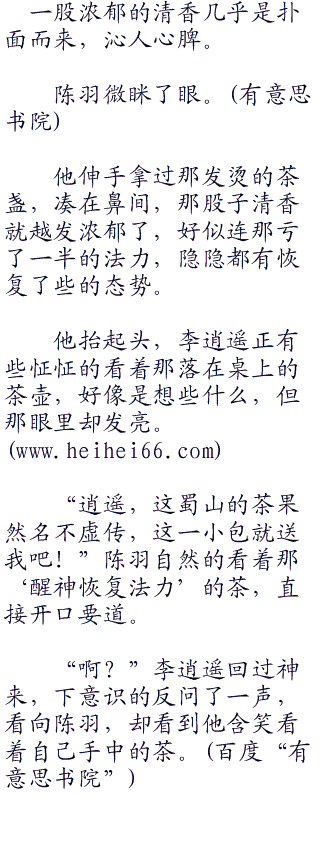 一股浓郁的清香几乎是扑
面而来，沁人心脾。
陈羽微眯了眼。(有意思
书院)
他伸手拿过那发烫的茶
盏，凑在鼻间，那股子清香
就越发浓郁了，好似连那亏
了一半的法力，隐隐都有恢
复了些的态势。
他抬起头，李逍遥正有
些怔怔的看着那落在桌上的
茶壶，好像是想些什么，但
那眼里却发亮。
(www.heihei66.com)
“逍遥，这蜀山的茶果
然名不虚传，这一小包就送
我吧！”陈羽自然的看着那
‘醒神恢复法力’的茶，直
接开口要道。
“啊？”李逍遥回过神
来，下意识的反问了一声，
看向陈羽，却看到他含笑看
着自己手中的茶。(百度“有
意思书院”)